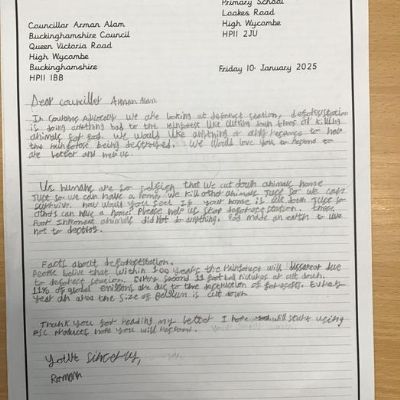 Primary School
Loakes Road
High Wycombe
HP11 2JU
Councillor Arman Alam
Buckinghamshire Council
Queen Victoria Road
High Wycombe
Buckinghamshire
HP11 1BB
Friday 10 January 2025
Dear Councillor Arman Alam
we are looking at deforestation, deforestation
is doing anything bad to the rainforest like cutting down trees or killing
animals for food. We would like anything or any response to how
the rainforest being destroyed. We would love you to respond to
Us humans are so selfish that we cut down animals home
just so we can have a home. We kill other animals just so we can
How would you feel if your home is cut down just so
others can have a home. Please help us stop deforestation.
animals did not do anything. God made an earth to live
not to destroy.
Facts about deforestation.
People believe that within 100 years the rainforest will due
to deforestation. Every second football pitches are cut down.
11% of global emissions are due to the destruction of forests. Every
year an area the size of Belgium is cut down
Thank you for reading my letter I hope start using
products hope you will respond.
Yours sincerely,